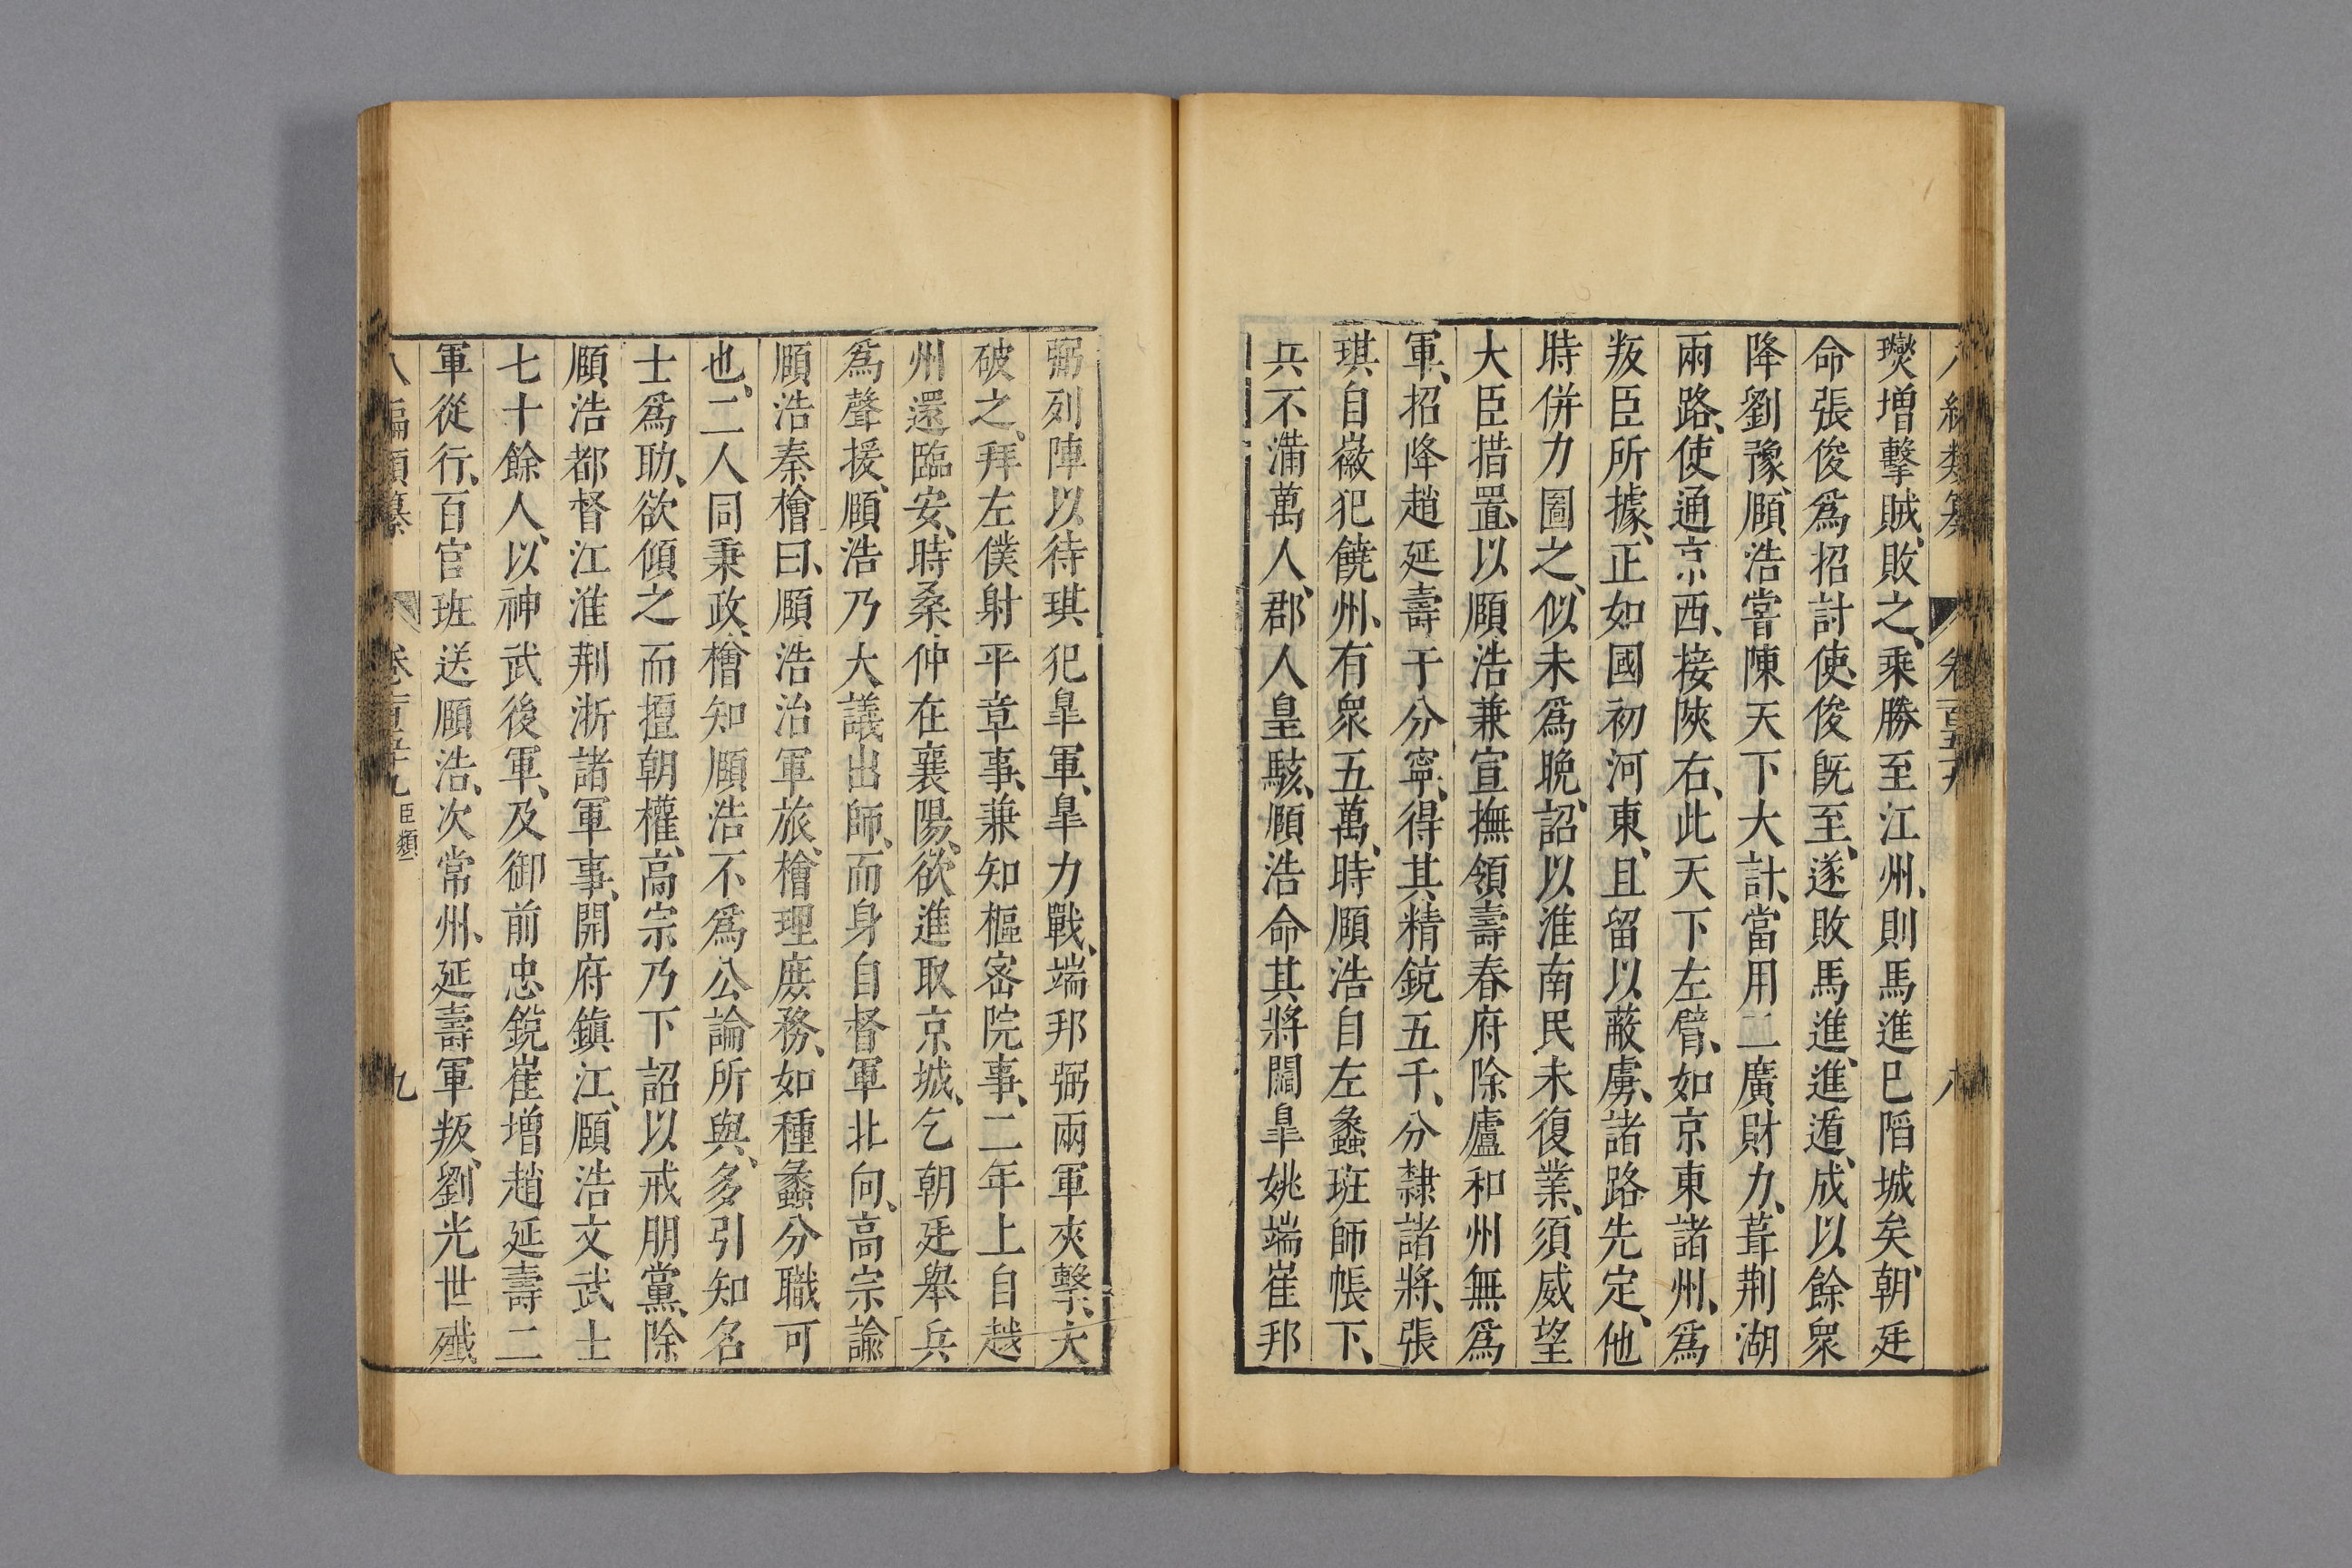 八編類纂 卷一百五十九 八
璯增擊賊、敗之、乘勝至江州、則馬進巳陷城矣、朝廷
命張俊爲招討使、俊旣至、遂敗馬進、進遁、成以餘衆
降劉豫、頤浩嘗陳天下大計、當用二廣財力、葺荆湖
兩路、使通京西、接陝右、此天下左臂、如京東諸州、爲
叛臣所據、正如國初河東、且留以蔽虜、諸路先定、他
時併力圖之、似未爲晚、詔以淮南民未復業、須威望
大臣措置、以頤浩兼宣撫領壽春府除廬和州無爲
軍、招降趙延壽于分寧、得其精銳五千、分隸諸將、張
琪自徽犯饒州、有衆五萬、時頤浩自左蠡班師帳下、
兵不滿萬人、郡人皇駭、頤浩命其將閻皐姚端崔邦
弼列陣以待琪犯皐軍、皐力戰、端邦弼兩軍夾擊、大
破之、拜左僕射平章事、兼知樞密院事、二年上自越
州還臨安、時桑仲在襄陽、欲進取京城、乞朝廷舉兵
爲聲援、頤浩乃大議出師、而身自督軍北向、高宗諭
頤浩秦檜曰、頤浩治軍旅、檜理庶務、如種蠡分職可
也、二人同秉政、檜知頤浩不爲公論所與、多引知名
士爲助、欲傾之而擅朝權、高宗乃下詔以戒朋黨、除
頤浩都督江淮荆浙諸軍事、開府鎭江、頤浩文武士
七十餘人、以神武後軍、及御前忠銳崔增趙延壽二
軍從行、百官班送頤浩、次常州、延壽軍叛、劉光世殲
八編類纂 卷一百五十九 臣類 九